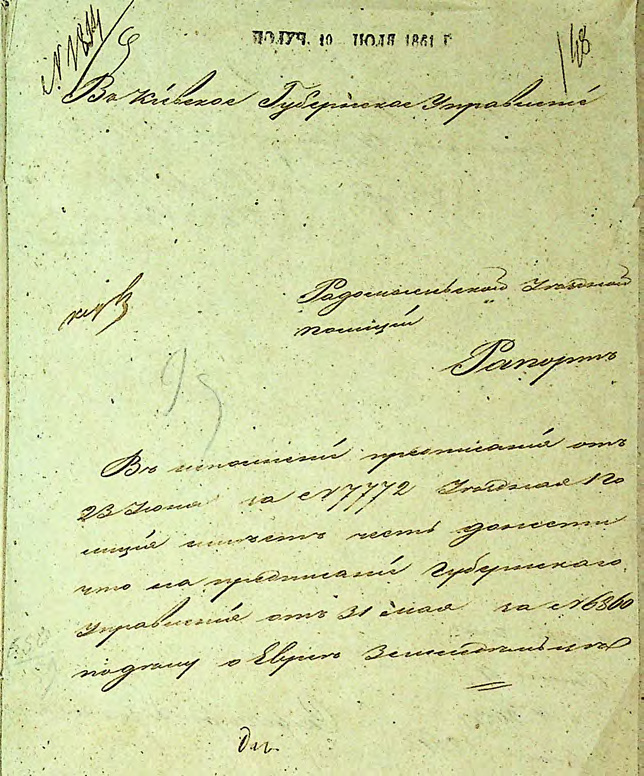 N 1814
ПОЛУЧ. 10 ИЮЛЯ 1861 Г
168
Въ Кіевское Губернское Управленіе
Радомысльской Уѣздной
полиціи
Рапортъ
Въ исполненіи предписанія отъ
23 Іюня за N 7772 Уѣздная По
лиція имѣетъ честь донести
что на предписаніе Губернскаго
Управленія отъ 31 мая за N 6860
по дѣлу о Евреѣ